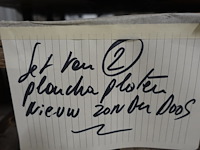 Set van 2
plancha platen
Nieuw zonder Doos